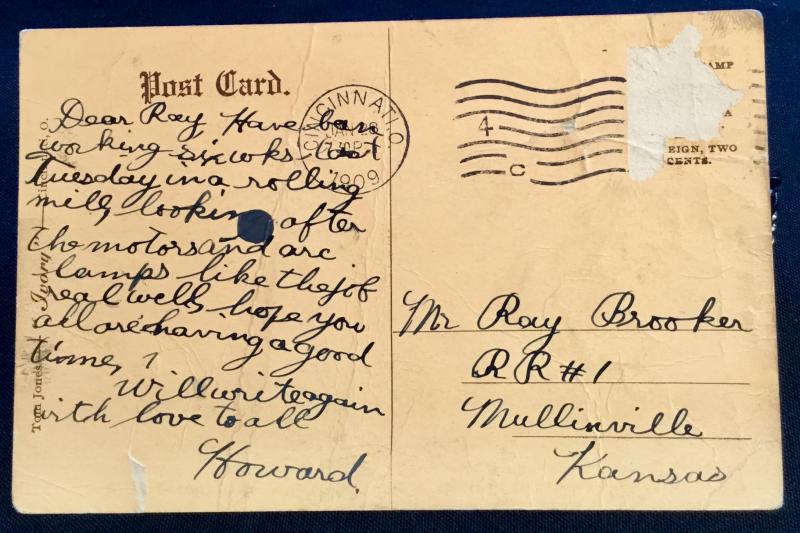 Post Card.
Dear Ray Have ban
working six wks last
Tuesday in a rolling
mill, lookin after
the motors and arc
lamps like the job
real well, hope you
all are having a good
time, I
will write again
with love to all
Howard.
Tom Jones
Ivory
CINCINNATI, O.
JAN 28
7 30 P
1909
4
C
AMP
A
EIGN, TWO
CENTS.
Mr Ray Brooker
RR #1
Mullinville
Kansas